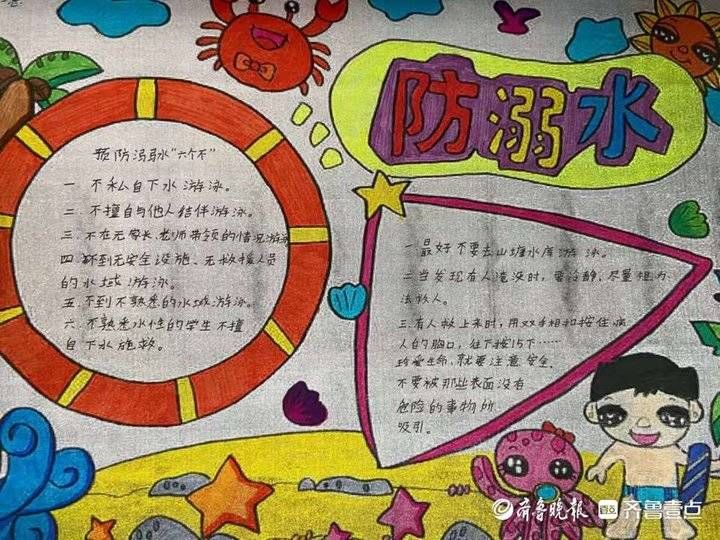 防溺水
预防溺水“六个不”
一 不私自下水游泳。
二 不擅自与他人结伴游泳。
三 不在无家长、老师带领的情况游泳
四 不到无安全设施、无救援人员
的水域游泳。
五.不到不熟悉的水域游泳。
六.不熟悉水性的学生不擅
自下水施救。
一 最好不要去山塘水库游泳。
二当发现有人淹没时,要冷静、尽量想办
法救人。
三.有人救上来时,用双手相扣按住病
人的胸口,往下按15下……
珍爱生命,就要注意安全.
不要被那些表面没有
危险的事物所
吸引。
齐鲁晚报 齐鲁壹点